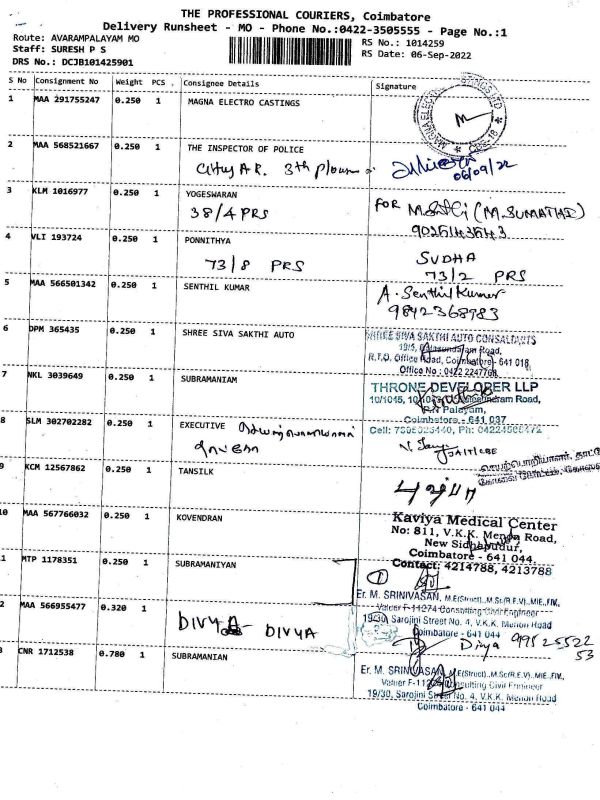 THE PROFESSIONAL COURIERS, Coimbatore
Delivery Runsheet - MO - Phone No.:0422-3505555 - Page No.:1
Route: AVARAMPALAYAM MO
RS No.: 1014259
Staff: SURESH P S
RS Date: 06-Sep-2022
DRS No.: DCJB101425901
S No Consignment No Weight PCS . Consignee Details Signature
1 MAA 291755247 0.250 1 MAGNA ELECTRO CASTINGS
2 MAA 568521667 0.250 1 THE INSPECTOR OF POLICE
City A.R. 3th
06/09/22
3 KLM 1016977 0.250 1 YOGESWARAN
38/4 PRS
FOR (M.SUMATHI)
4 VLI 193724 0.250 1 PONNITHYA
73/8 PRS
SUDHA
73/2 PRS
5 MAA 566501342 0.250 1 SENTHIL KUMAR
A. Senthil Kumar
9842368983
6 DPM 365435 0.250 1 SHREE SIVA SAKTHI AUTO
SHREE SIVA SAKTHI AUTO CONSALTANTS
Road,
R.T.O. Office Road, Coimbatore - 641 018
Office No : 0422 2247768
7 NKL 3039649 0.250 1 SUBRAMANIAM
THRONE DEVELOPER LLP
10/1045, Road,
Palayam,
Coimbatore - 641 037
8 SLM 302702282 0.250 1 EXECUTIVE
9 KCM 12567862 0.250 1 TANSILK
10 MAA 567766032 0.250 1 KOVENDRAN
Kaviya Medical Center
No: 811, V.K.K. Menon Road,
New Sidhapudur,
Coimbatore - 641 044.
Contact: 4214788, 4213788
1 MTP 1178351 0.250 1 SUBRAMANIYAN
1
Er. M. SRINIVASAN, M.E(Struct)..M.Sc(R.E.V)..MIE.,FIV.,
Valuer F-11274 Consulting Civil Engineer
19/30, Sarojini Street No. 4, V.K.K. Menon Road
Coimbatore - 641 044
2 MAA 566955477 0.320 1
DIVYA - DIVYA
Divya 99525522
53
3 CNR 1712538 0.780 1 SUBRAMANIAN
Er. M. SRINIVASAN, M.E(Struct)..M.Sc(R.E.V)..MIE.,FIV.,
Valuer F-11274 Consulting Civil Engineer
19/30, Sarojini Street No. 4, V.K.K. Menon Road
Coimbatore - 641 044